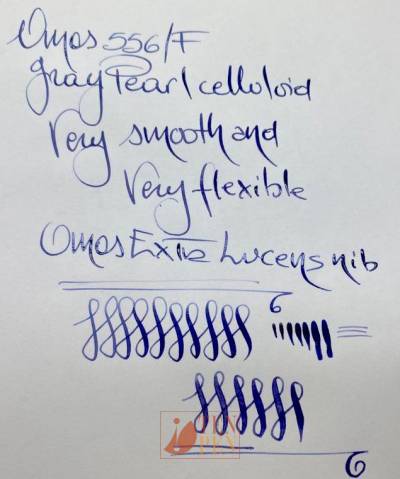 Omas 556/F
Gray Pearl celluloid
Very smooth and
Very flexible
Omas Extra Lucens nib
6
PEN
PEN
6